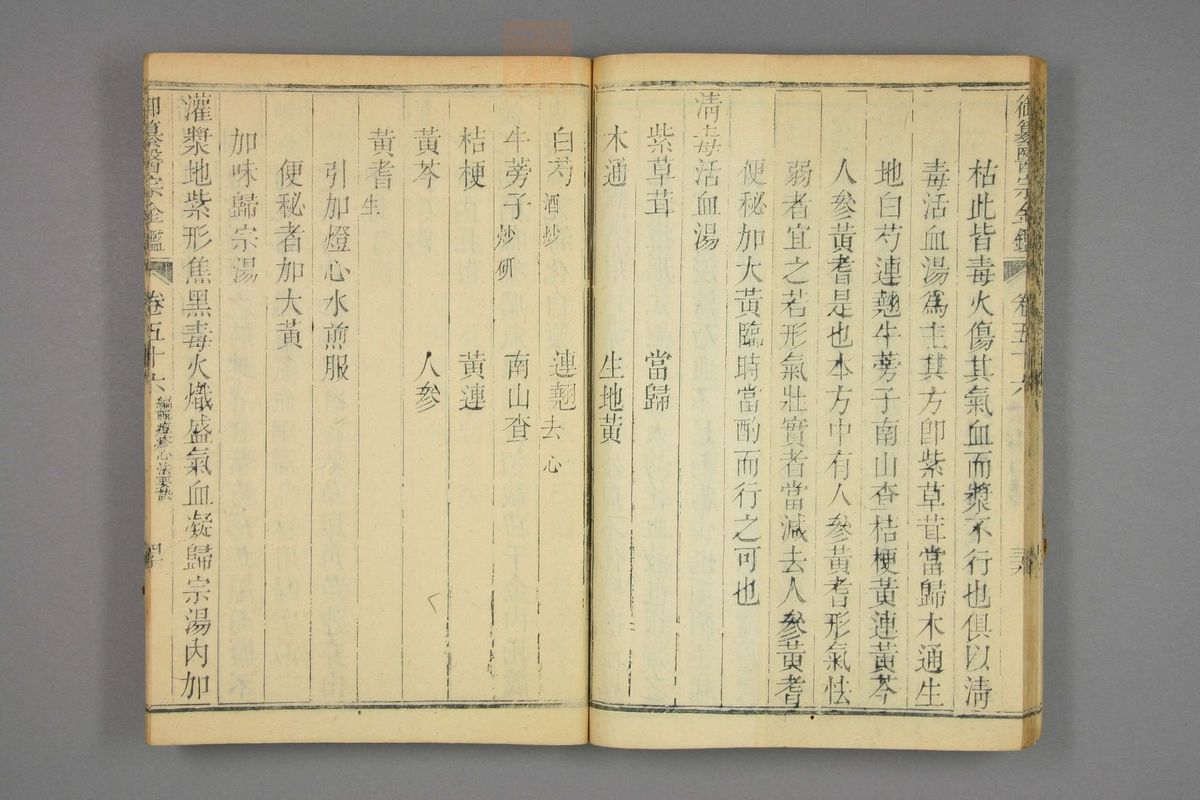 御纂醫宗金鑑
卷五十六
枯此皆毒火傷其氣血而漿不行也俱以清
毒活血湯為主其方卽紫草茸當歸木通生
地白芍連翹牛蒡子南山查桔梗黃連黃芩
人參黃耆是也本方中有人參黃耆形氣怯
弱者宜之若形氣壯實者當減去人參黃耆
便秘加大黃臨時當酌而行之可也
清毒活血湯
紫草茸 當歸
木通 生地黃
白芍酒炒 連翹去心
牛蒡子炒研 南山查
桔梗 黃連
黃芩 人參
黃耆生
引加燈心水煎服
便秘者加大黃
加味歸宗湯
灌漿地紫形焦黑毒火熾盛氣血凝歸宗湯內加
御纂醫宗金鑑 卷五十六 編輯痘疹心法要訣